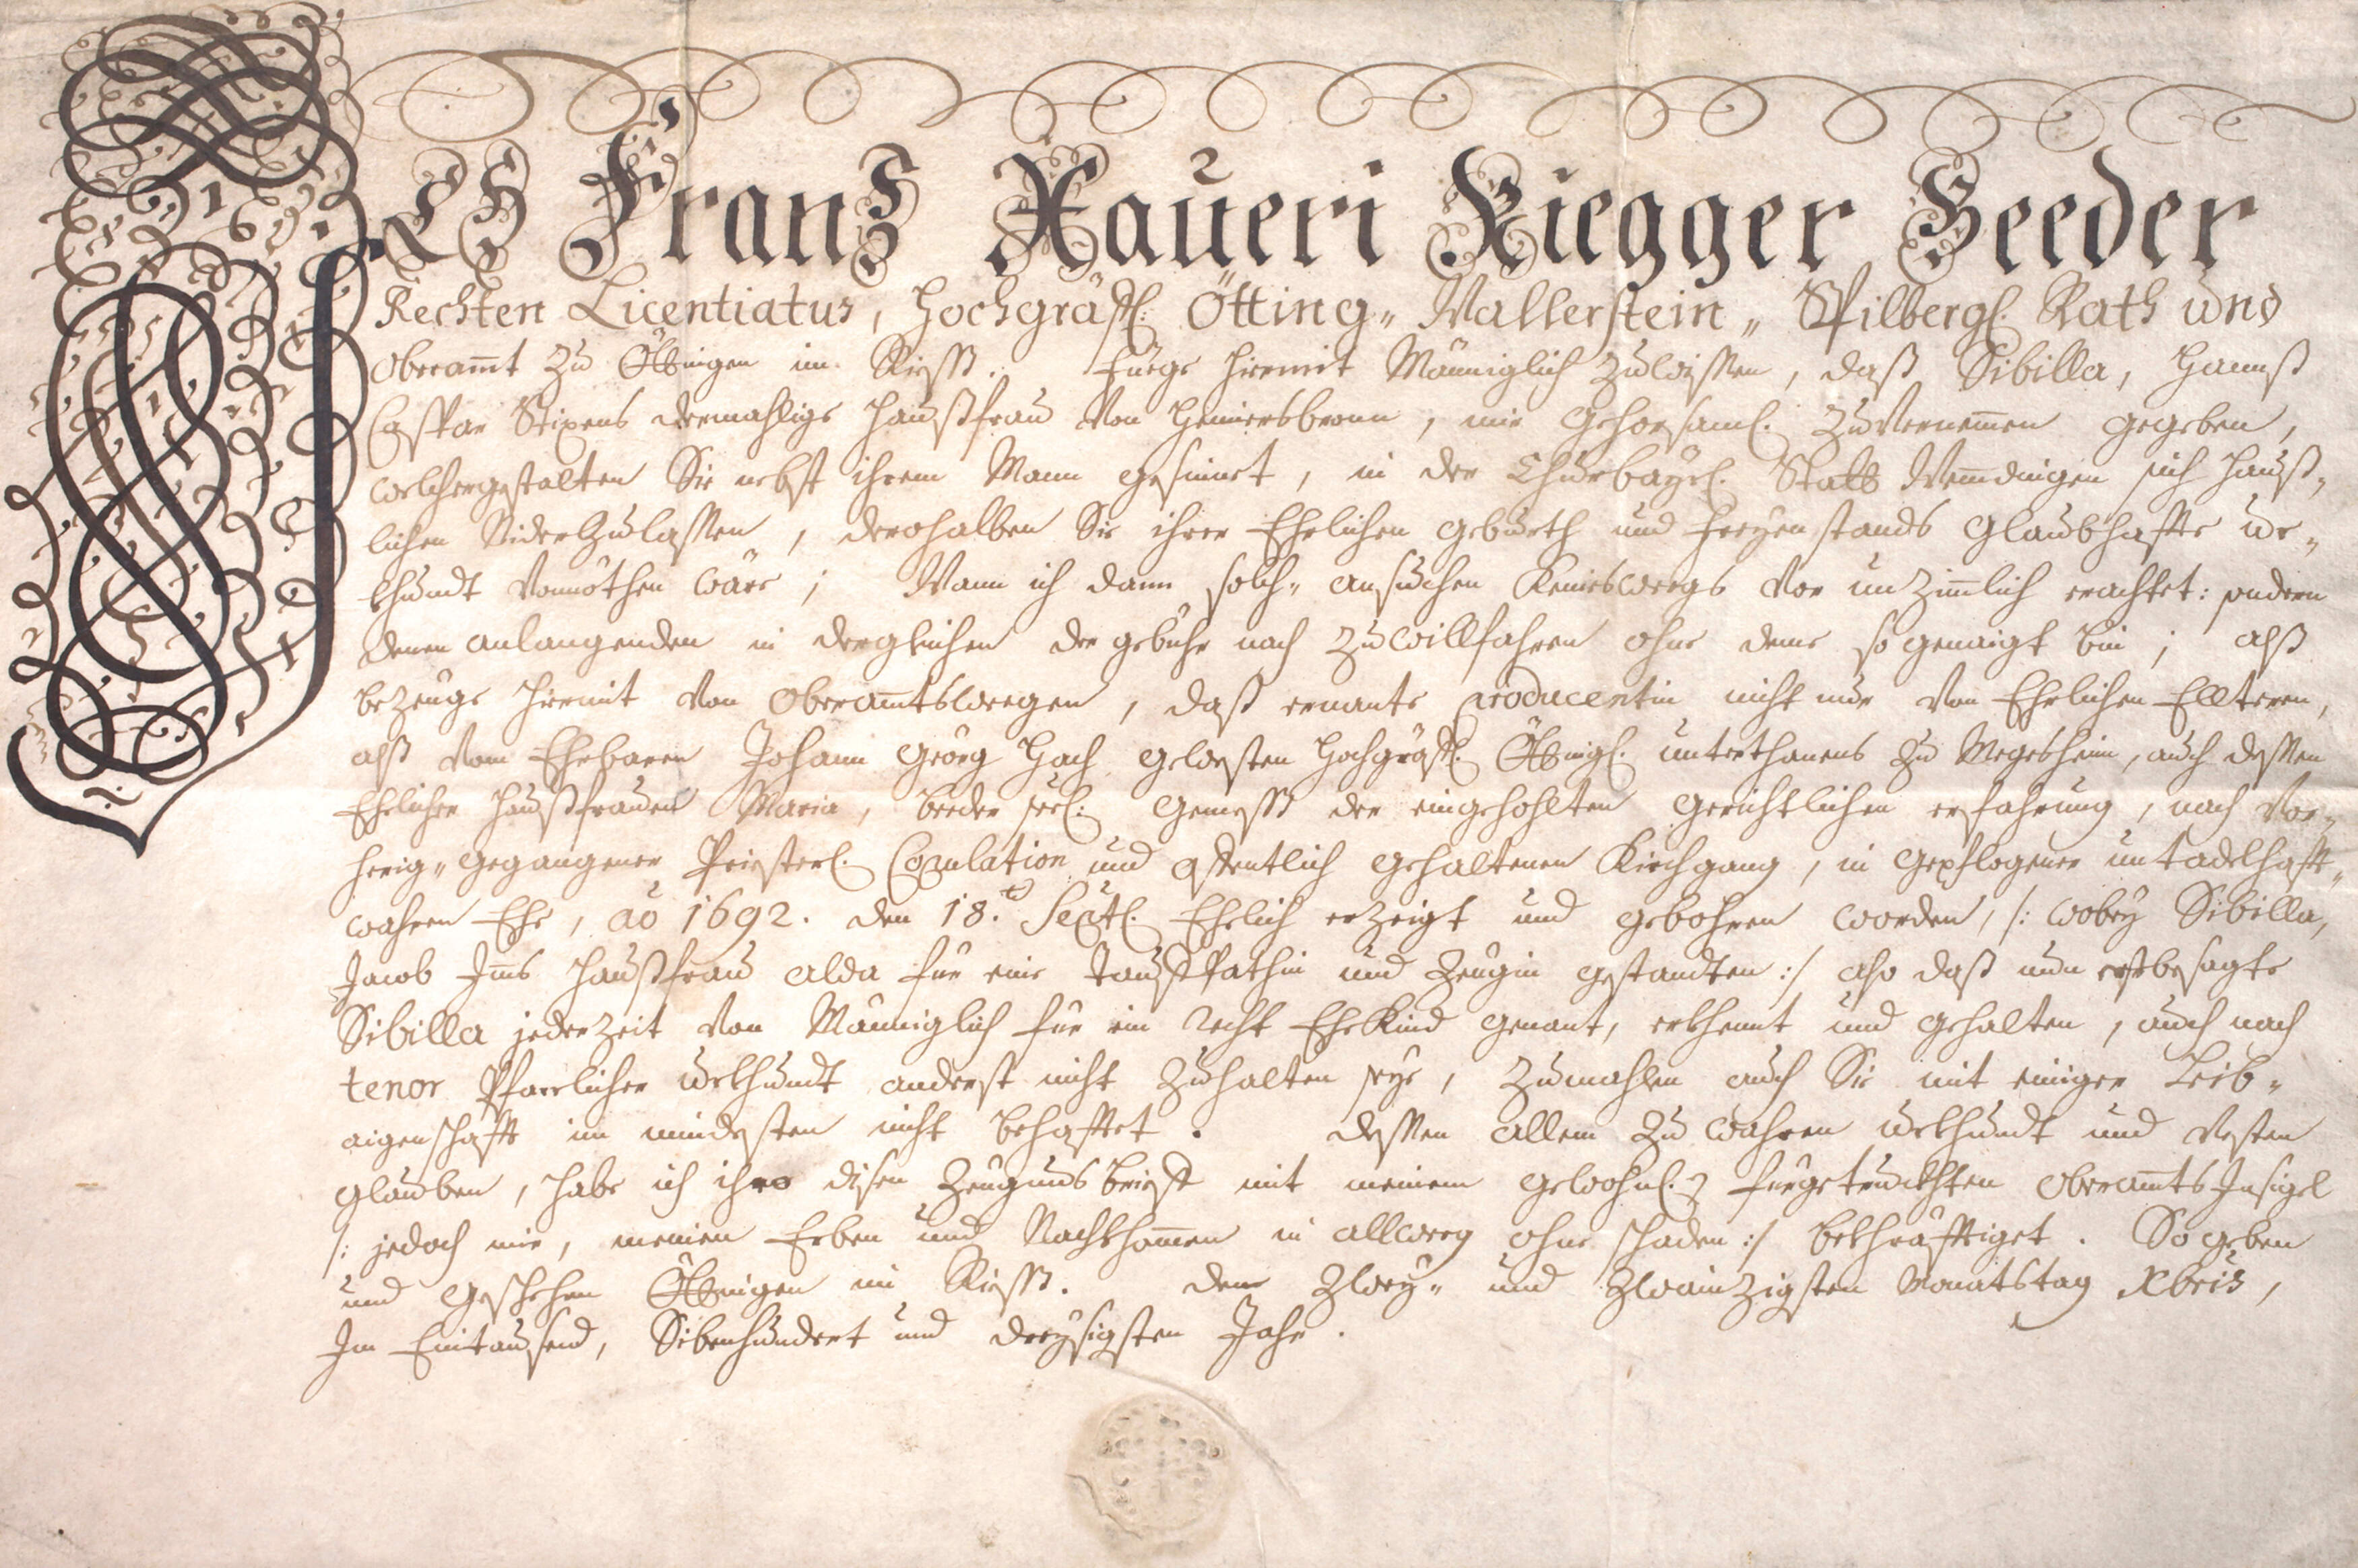 ICH Frantz Xaueri Riegger Beeder
Rechten Licentiatus, Hochgräffl: Ötting„ Wallerstein„ Spilbergl. Rath und
Oberam̄t zu Öttingen im Riess. Füege hiemit Männiglich zuwissen, daß Sibilla, Hannß
Caspar Stixens dermahlige Haußfrau von Heüersbronn, mir gehorsaml. zuvernem̄en gegeben,
welchergestalten Sie nebst ihrem Mann gesinnet, in der Churbayrl. Statt Wem̄dingen sich Hauß„
lichen Niderzulassen, derohalben Sie ihrer Ehrlichen geburth und freyen stands Glaubhaffte ur„
khundt vonnöthen wäre; Wann ich dann solch„ ansuchen Keineswegs vor unzim̄lich erachtet: sondern
denen anlangenden in dergleichen der gebühr nach zuwillfahren ohne deme so genaigt bin; alß
bezeuge hiemit von Oberam̄tswegen, daß ernante Producentin nicht nur von Ehrlichen Elltern,
alß vom Ehrbaren Johann Georg Hach gewesten Hochgräffl. Öttingl. unterthanens zu Megesheim, auch dessen
Ehelicher Haußfrauen Maria, beeder seel: gemess der eingehohlten gerichtlichen erfahrung, nach vor„
herig„ gegangener Priesterl. Copulation und offentlich gehaltenen Kirchgang, in gepflogener untadelhafft„
wahren Ehe, aō 1692. den 18.t Septl. Ehelich erzeigt und gebohren worden, /: wobey Sibilla,
Jacob Haußfrau alda für eine Tauffpathin und Zeugin gestandten :/ also daß nun erstbesagte
Sibilla jederzeit von Männiglich für ein recht EheKind genant, erkhennt und gehalten, auch nach
tenor Pfarrlicher urkhundt anderst nicht zuhalten seye, zumahlen auch Sie mit einiger Leib„
aigenschafft im mindesten nicht behafftet. dessen allem zu wahren urkhundt und vesten
glauben, habe ich ihro disen Zeugnusbrieff mit meinem gewohnl. fürgetruckhten Oberam̄ts Insigel
/: jedoch mir, meinen Erben und Nachkhom̄en in allweeg ohne schaden :/ bekhräfftiget. So geben
und geschehen Öttingen im Riess. den Zwey„ und Zwainzigsten Monatstag Xbris,
Im Eintausend, Sibenhundert und dreysigsten Jahr.